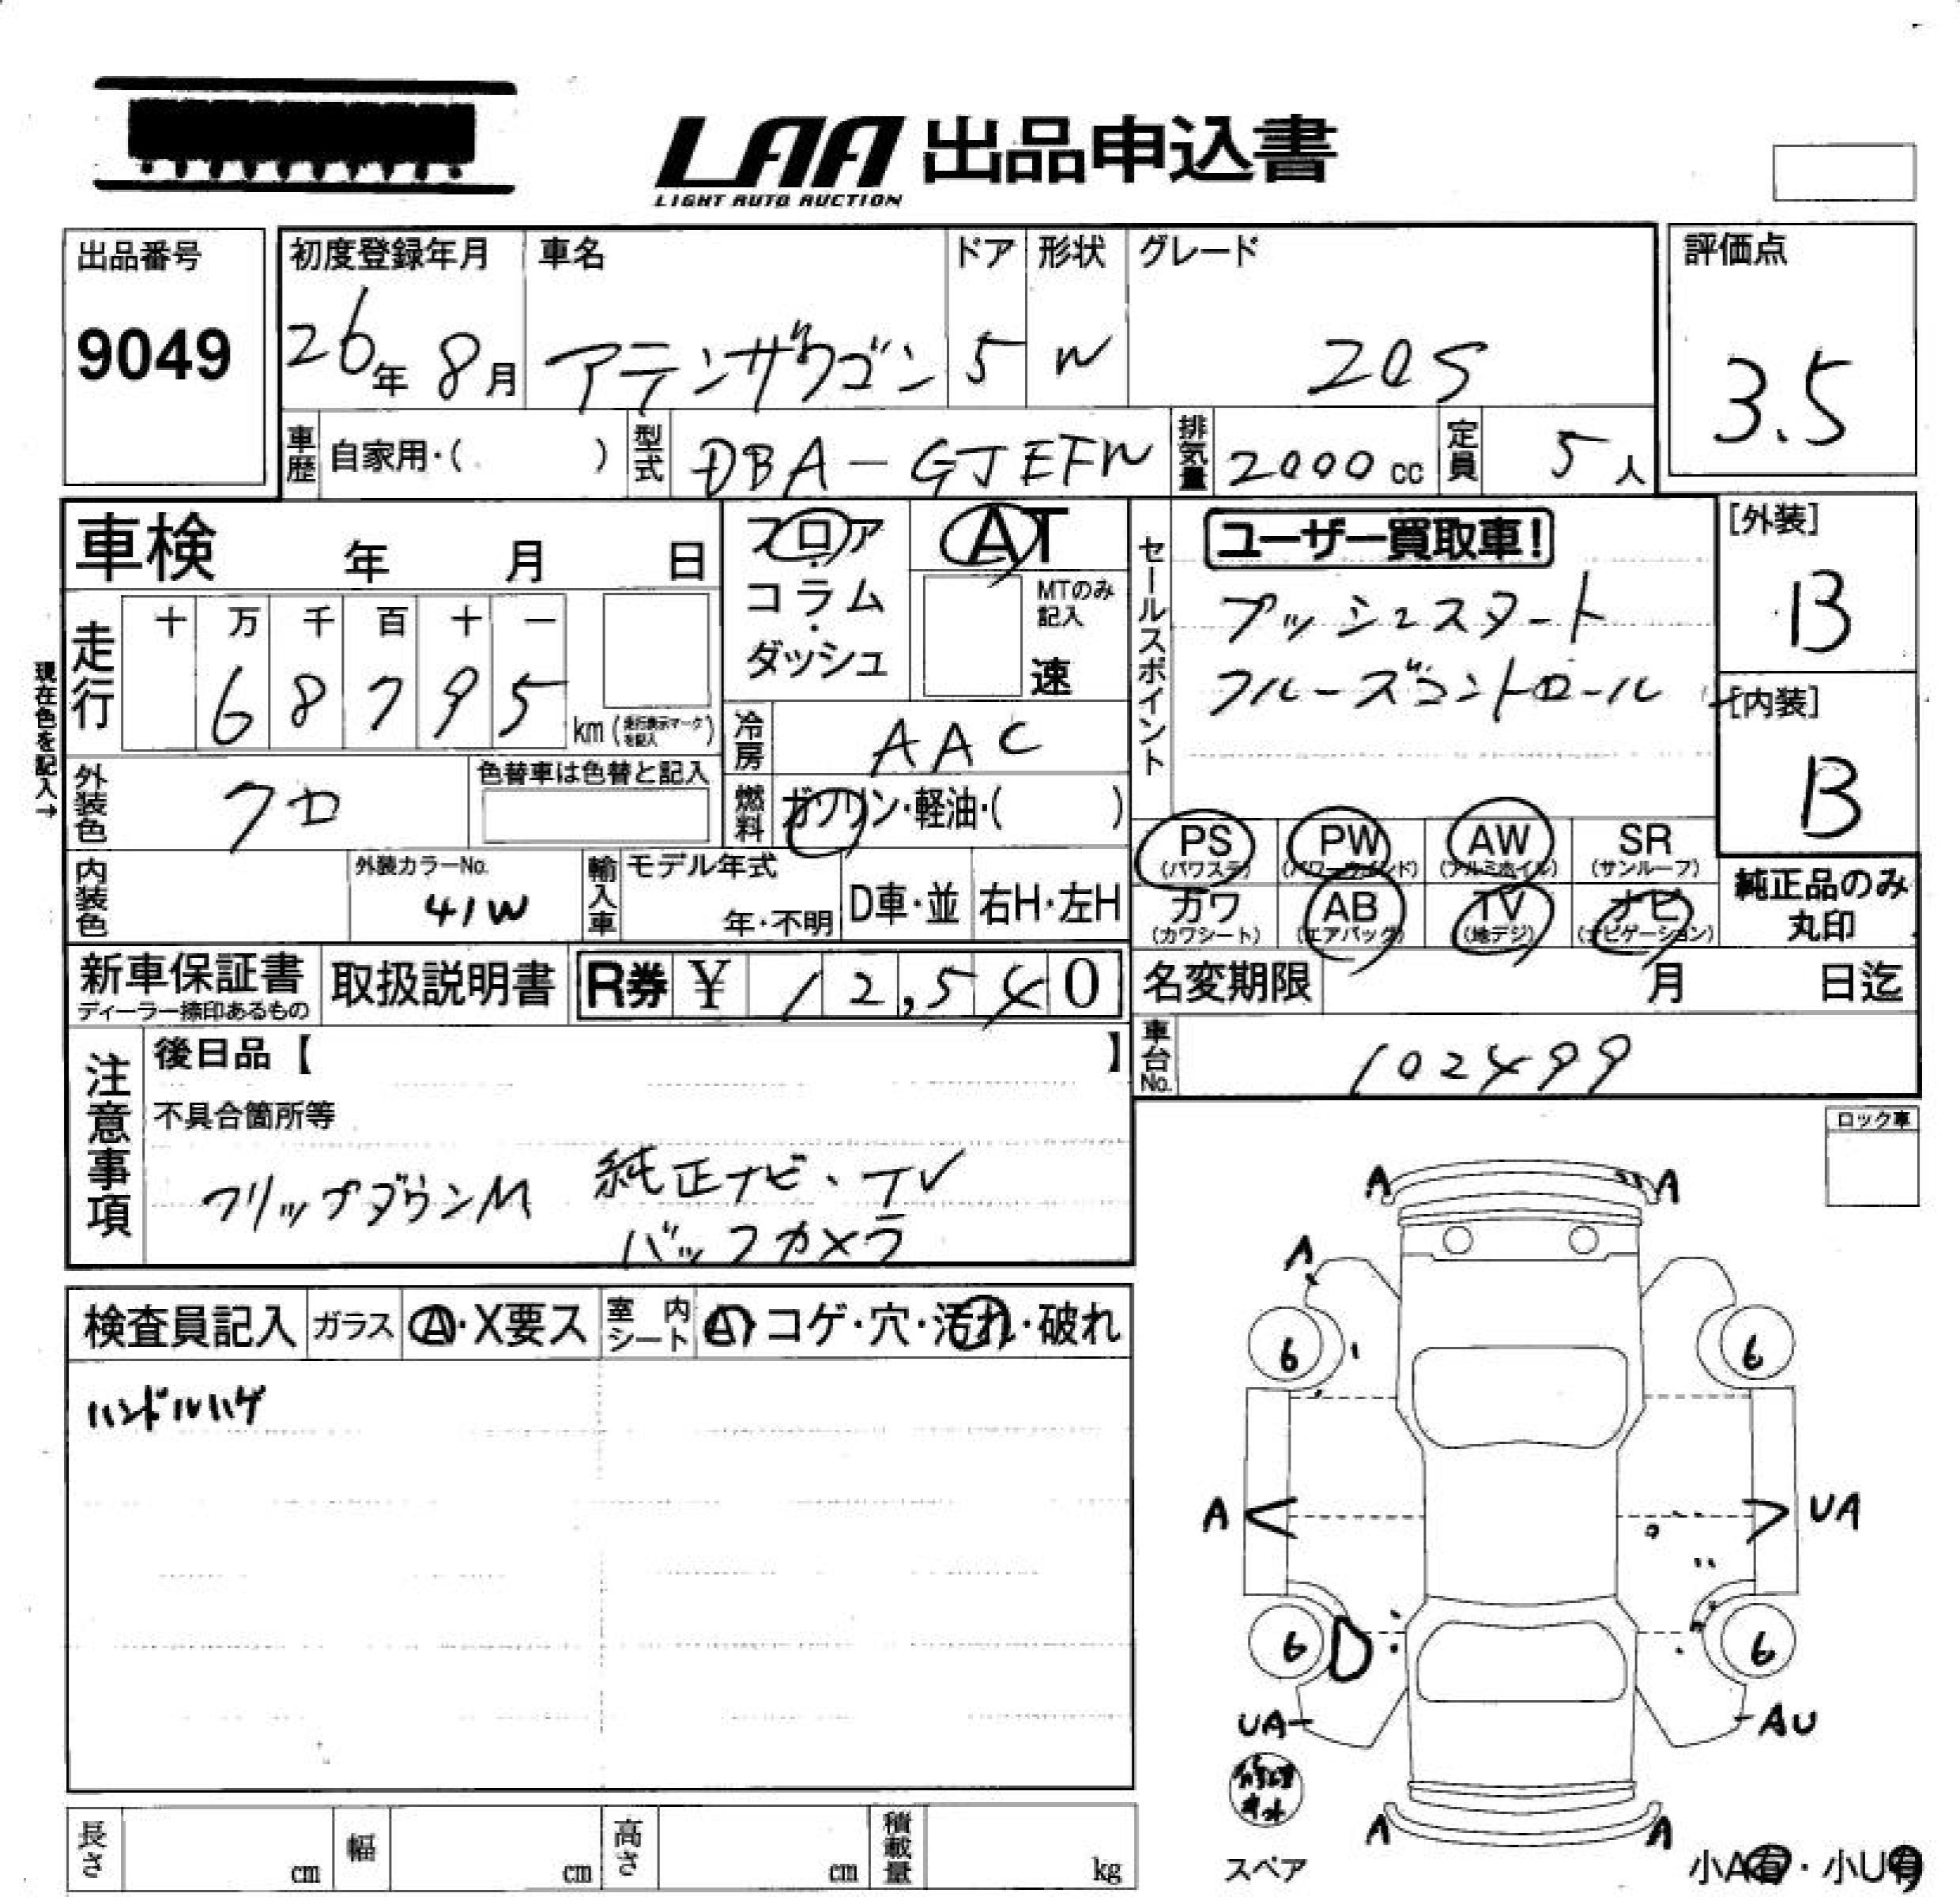 LAA 出品申込書
LIGHT AUTO AUCTION
出品番号
9049
初度登録年月
26年 8月
車名
アテンザワゴン
ドア
5
形状
W
グレード
20S
評価点
3.5
車歴 自家用・( )
型式 DBA-GJEFW
排気量 2000cc
定員 5人
車検 年 月 日
フロア・コラム・ダッシュ
AT
MTのみ記入
速
セールスポイント
ユーザー買取車!
プッシュスタート
クルーズコントロール
[外装]
B
[内装]
B
現在色を記入→
走行
十 万 千 百 十 一
6 8 7 9 5
km (走行表示マークを記入)
冷房 AAC
外装色 クロ
色替車は色替と記入
燃料 ガソリン・軽油・( )
PS (パワステ)
PW (パワーウインド)
AW (アルミホイル)
SR (サンルーフ)
カワ (カワシート)
AB (エアバッグ)
TV (地デジ)
ナビ (ナビゲーション)
純正品のみ丸印
内装色
外装カラーNo.
41W
輸入車
モデル年式
年・不明
D車・並
右H・左H
新車保証書
ディーラー捺印あるもの
取扱説明書
R券 ¥ 12,540
名変期限 月 日迄
車台No. 102499
注意事項
後日品【 】
不具合箇所等
フリップダウンM 純正ナビ・TV
バックカメラ
ロック車
検査員記入 ガラス A・X要ス 室内シート A・コゲ・穴・汚れ・破れ
ハンドルハゲ
A A
A
6 6
A UA
6 D 6
UA AU
修理キット
スペア
A A
小A有・小U有
長さ cm 幅 cm 高さ cm 積載量 kg